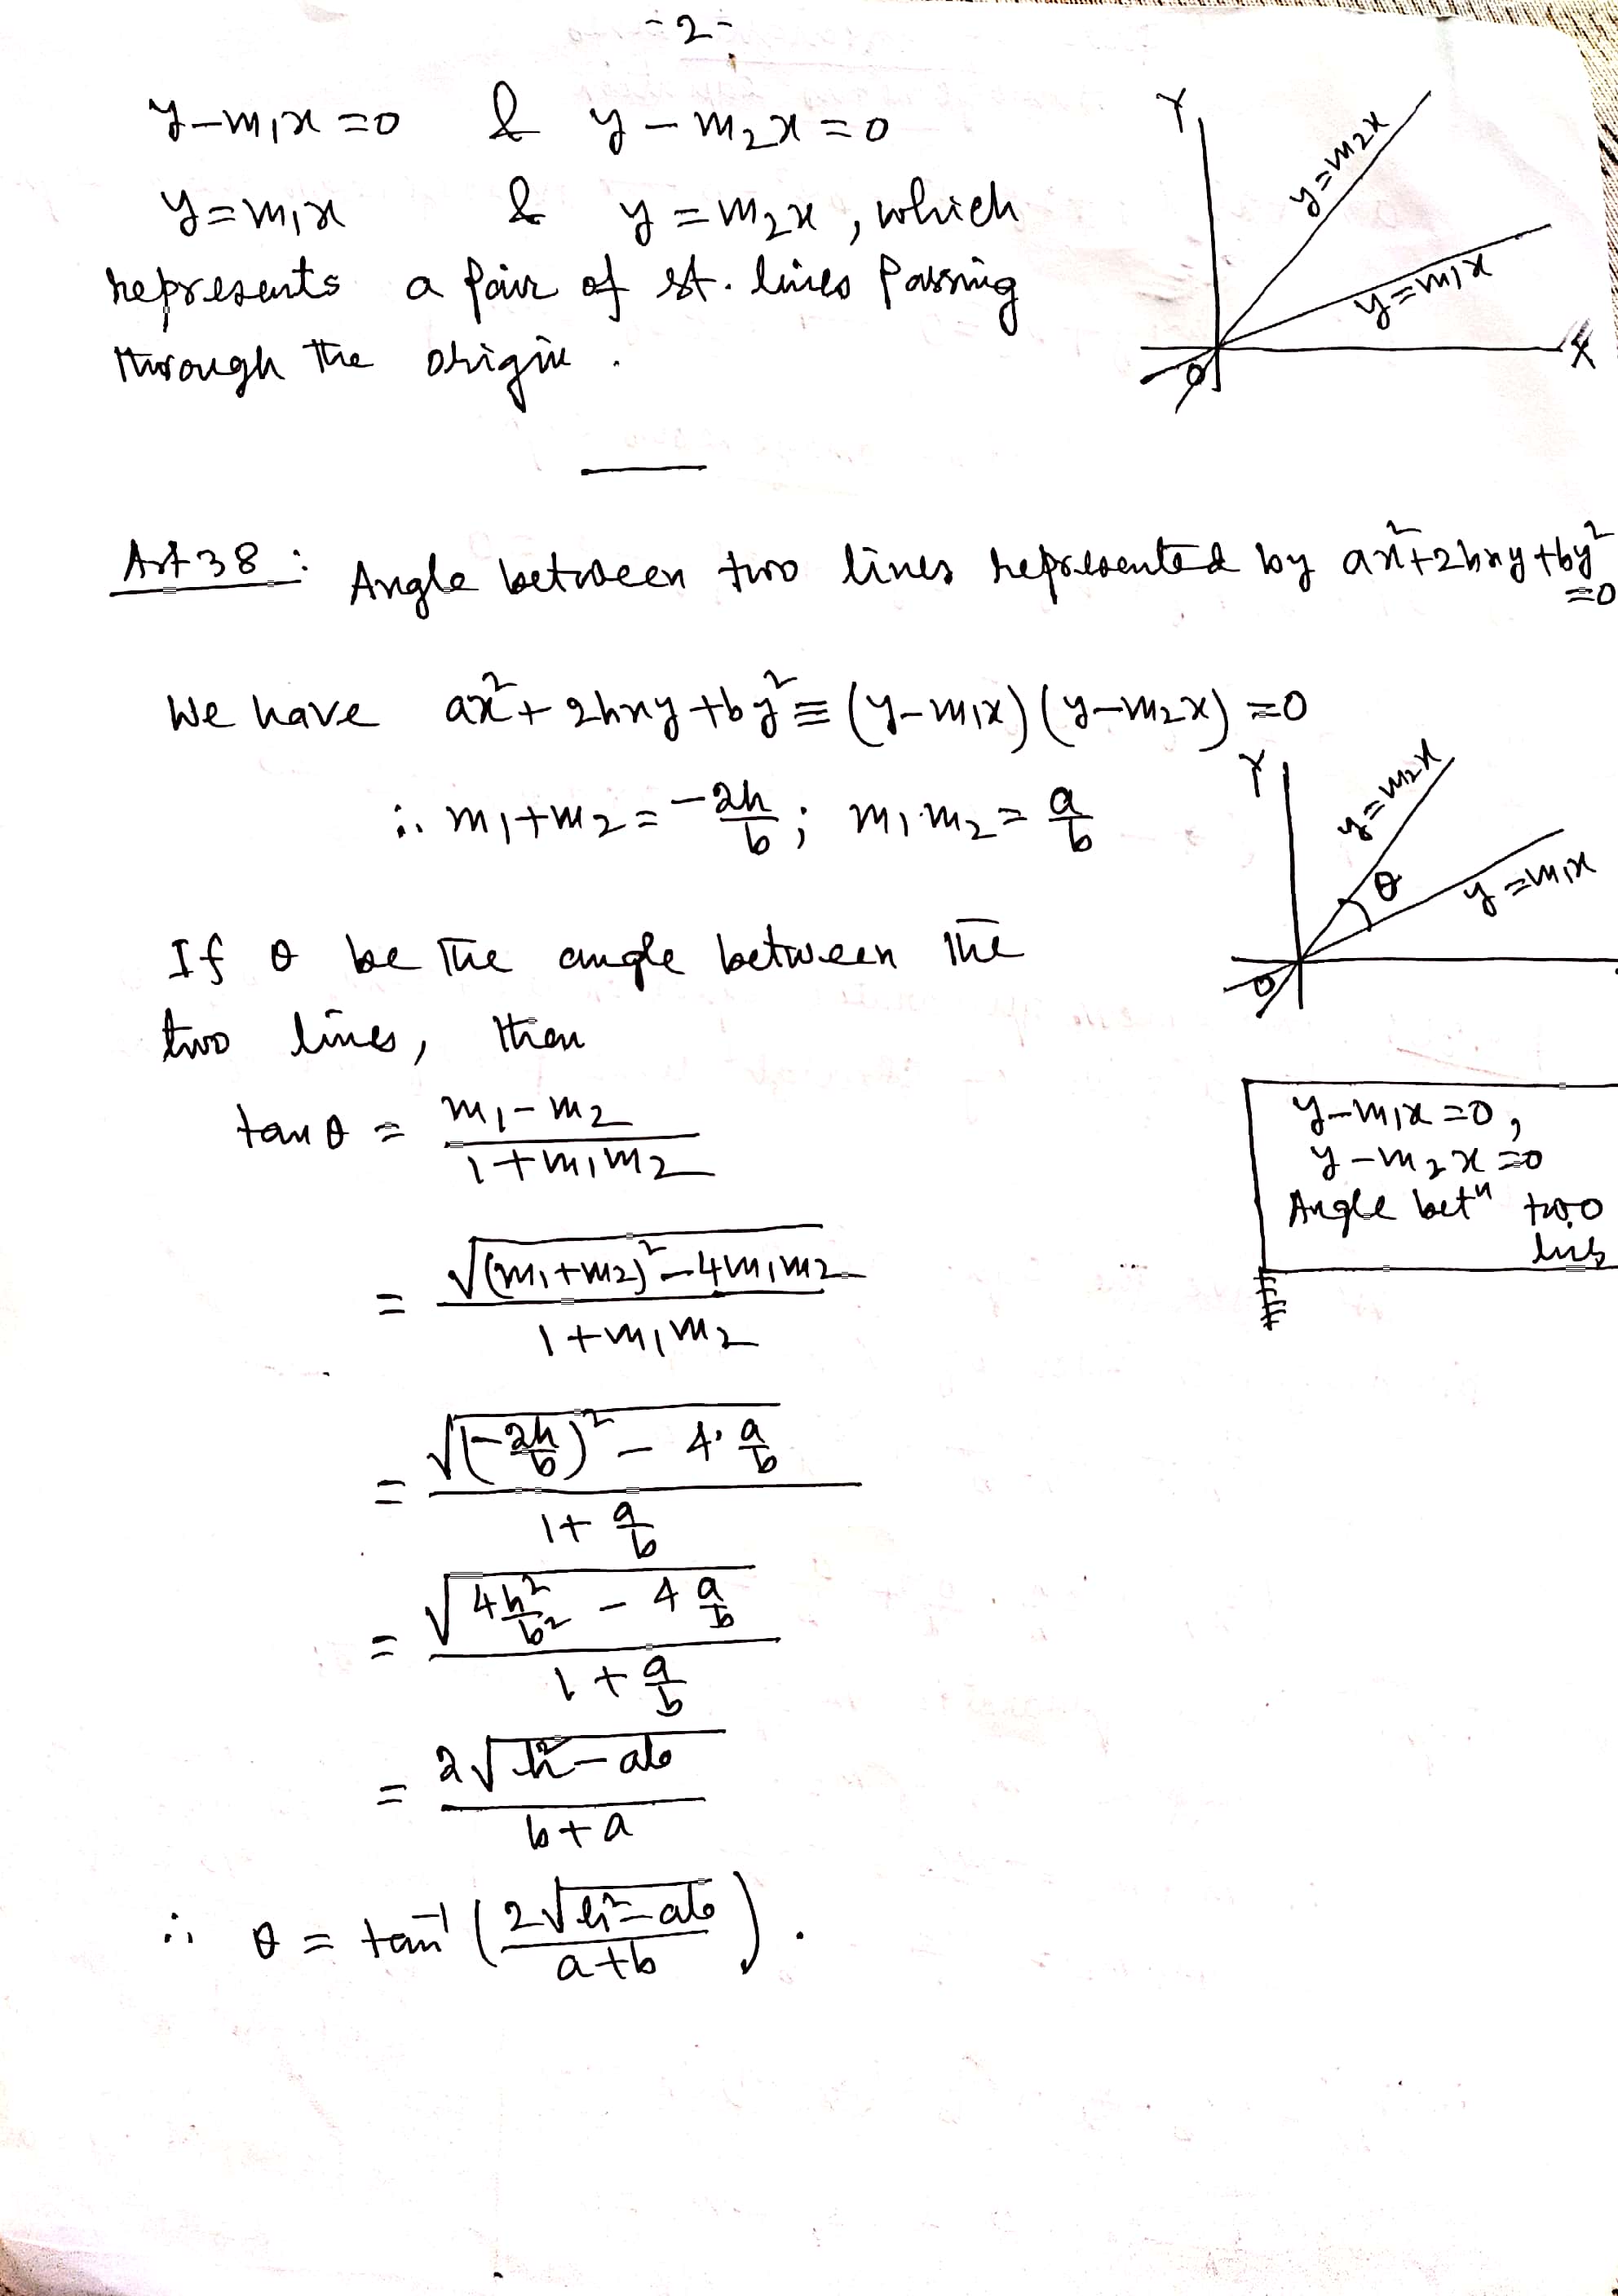 -2-
y-m₁x=0 & y-m₂x=0
y=m₁x & y=m₂x, which
represents a pair of st. lines passing
through the origin.
Y
y=m₂x
y=m₁x
X
O
Art 38: Angle between two lines represented by ax²+2hxy+by²
=0
We have ax²+2hxy+by² ≡ (y-m₁x)(y-m₂x)=0
∴ m₁+m₂ = -2h/b ; m₁.m₂ = a/b
Y
y=m₂x
θ
y=m₁x
O
If θ be the angle between the
two lines, then
tan θ = (m₁-m₂)/(1+m₁m₂)
y-m₁x=0,
y-m₂x=0
Angle betⁿ two
lns
= √((m₁+m₂)²-4m₁m₂)/(1+m₁m₂)
= √((-2h/b)² - 4·a/b)/(1+a/b)
= √(4h²/b² - 4a/b)/(1+a/b)
= 2√(h²-ab)/(b+a)
∴ θ = tan⁻¹(2√(h²-ab)/(a+b)).